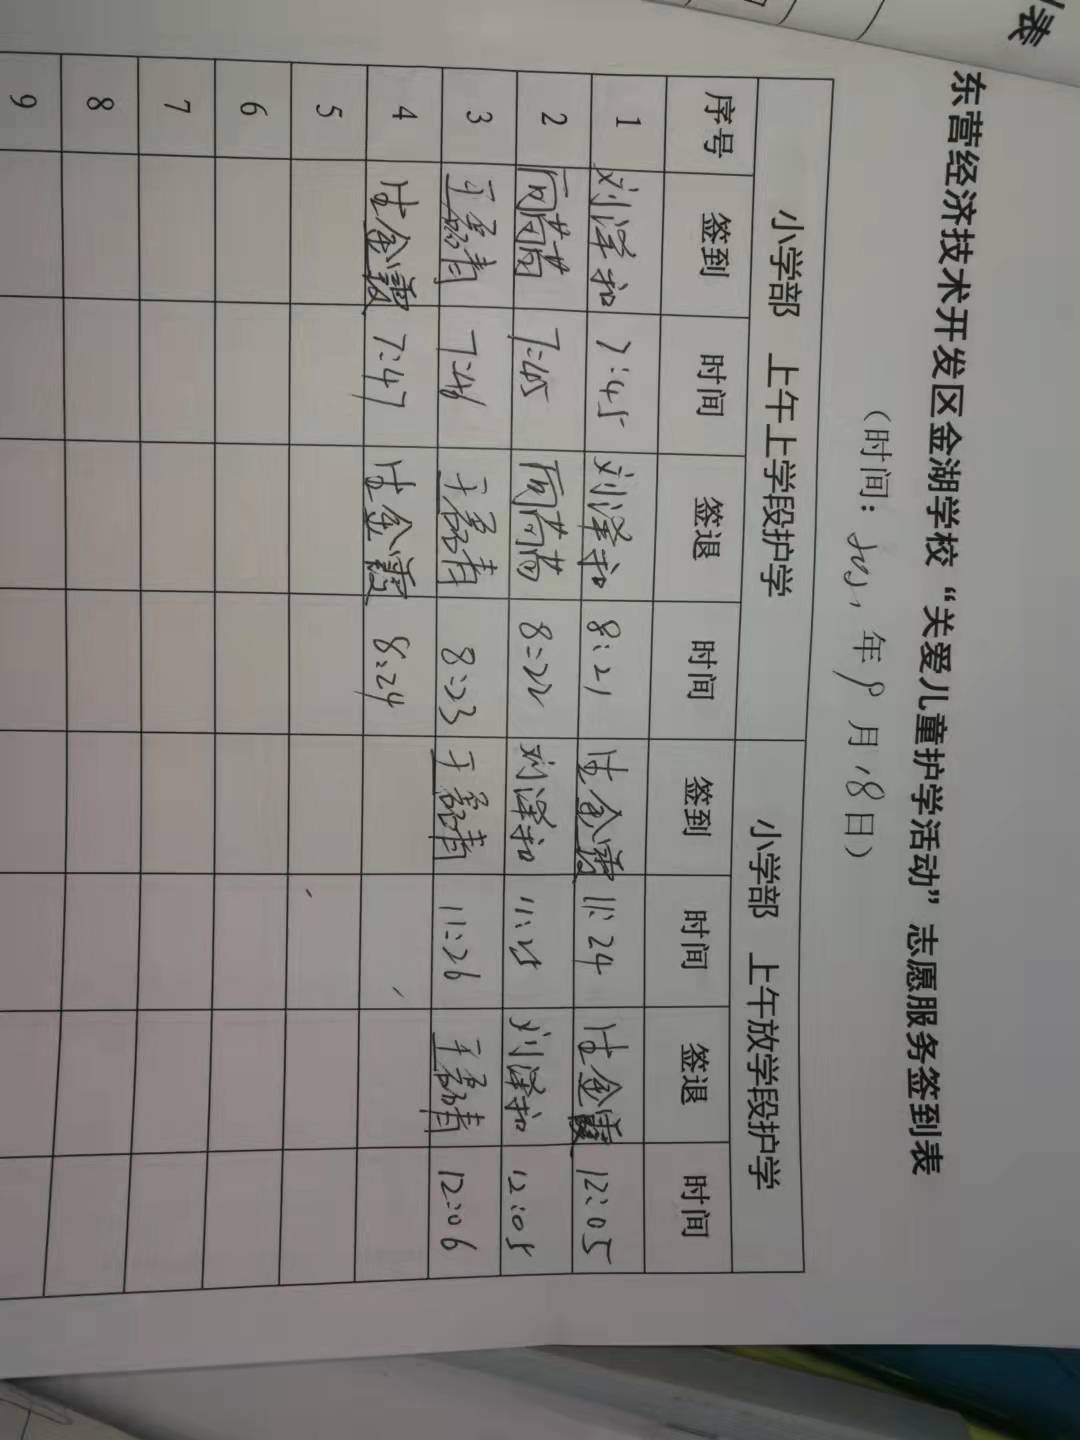 表
东营经济技术开发区金湖学校“关爱儿童护学活动”志愿服务签到表
(时间：2021年9月18日)
小学部 上午上学段护学 小学部 上午放学段护学
序号 签到 时间 签退 时间 签到 时间 签退 时间
1 刘泽和 7:45 刘泽和 8:21 生金霞 11:24 生金霞 12:05
2 7:45 8:22 刘泽和 11:25 刘泽和 12:05
3 7:46 8:23 11:26 12:06
4 生金霞 7:47 生金霞 8:24
5
6
7
8
9